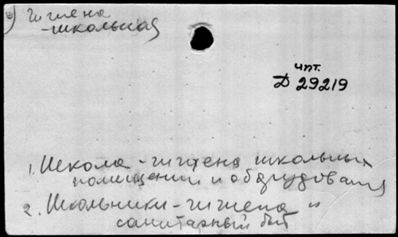 Гигиена
-школьная
чпт.
Д 29219
1. Школа - гигиена школьных
помещений и оборудования
2. Школьники - гигиена и
санитарный быт